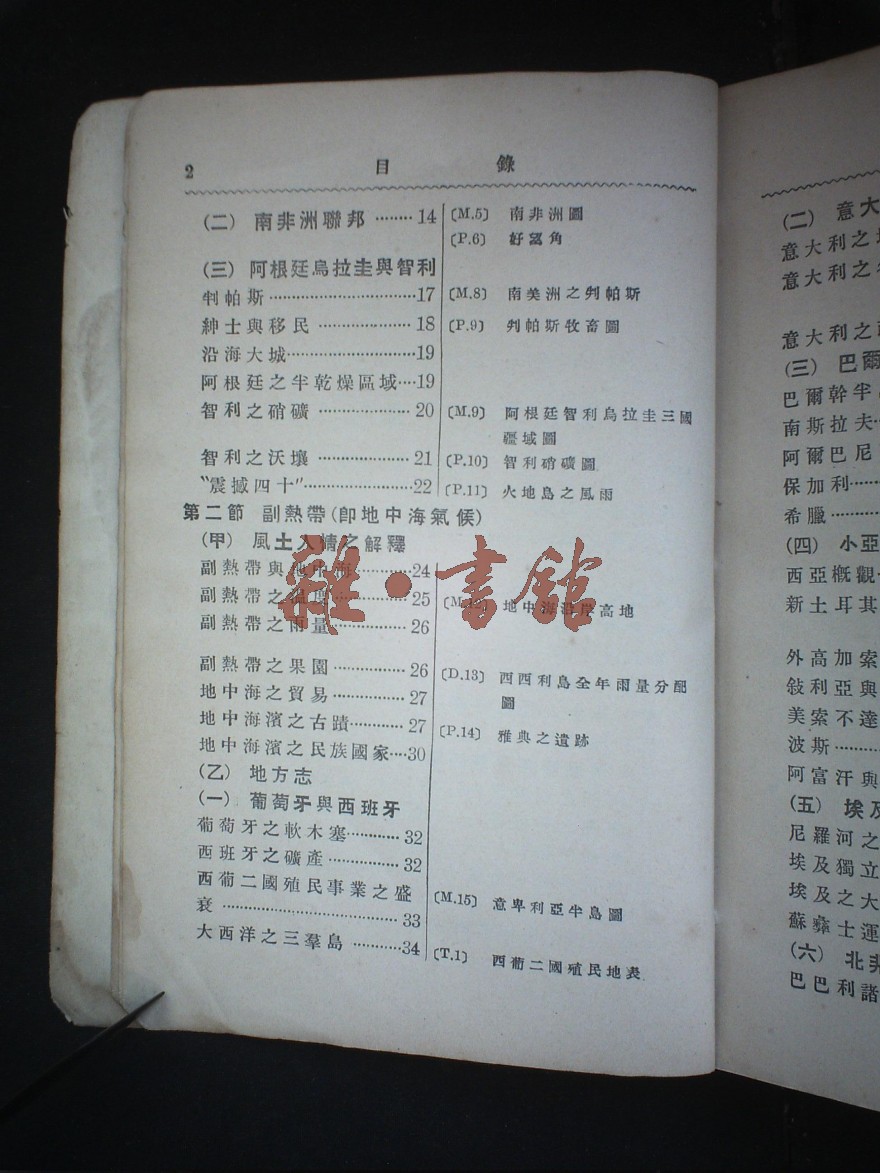 2 目 錄
(二) 南非洲聯邦 ········ 14
(三) 阿根廷烏拉圭與智利
判帕斯 ································17
紳士與移民 ···················· 18
沿海大城····························19
阿根廷之半乾燥區域····19
智利之硝礦 ···················· 20
智利之沃壤 ···················· 21
“震撼四十”························22
第二節 副熱帶(卽地中海氣候)
(甲) 風土人情之解釋
副熱帶與地中海············24
副熱帶之溫度················ 25
副熱帶之雨量················ 26
副熱帶之果園 ················ 26
地中海之貿易················ 27
地中海濱之古蹟············27
地中海濱之民族國家····30
(乙) 地方志
(一) 葡萄牙與西班牙
葡萄牙之軟木塞············ 32
西班牙之礦產 ················ 32
西葡二國殖民事業之盛
衰 ········································ 33
大西洋之三羣島 ············34
〔M.5〕 南非洲圖
〔P.6〕 好望角
〔M.8〕 南美洲之判帕斯
〔P.9〕 判帕斯牧畜圖
〔M.9〕 阿根廷智利烏拉圭三國
疆域圖
〔P.10〕 智利硝礦圖
〔P.11〕 火地島之風雨
〔M.12〕 地中海沿岸高地
〔D.13〕 西西利島全年雨量分配
圖
〔P.14〕 雅典之遺跡
〔M.15〕 意卑利亞半島圖
〔T.1〕 西葡二國殖民地表
雜·書館
(二) 意大
意大利之
意大利之
意大利之
(三) 巴爾
巴爾幹半
南斯拉夫
阿爾巴尼
保加利
希臘
(四) 小亞
西亞概觀
新土耳其
外高加索
敍利亞與
美索不達
波斯
阿富汗與
(五) 埃及
尼羅河之
埃及獨立
埃及之大
蘇彝士運
(六) 北非
巴巴利諸